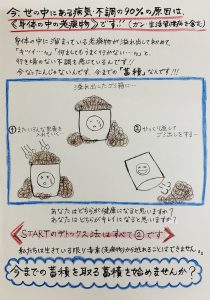 今、世の中にある病気・不調の90%の原因は、
《身体の中の老廃物》です!!(ガン・生活習慣病を含む)
身体の中に溜まっている老廃物が溢れ出して初めて、
「キツイ…」「何をしてもうまく行かない…」など
何らか優れない不調を感じているんです!!
今なったんじゃないんです、今までの「蓄積」なんです!!!
溢れ出したゴミ箱に…
①またいろんな栄養を
入れていく
②ひっくり返して
リセットする!!
あなたはどちらが健康になると思いますか?
あなたはどちらがキレイになると思いますか?
STARTのデトックス3法はすべて②です
私たちは生きている限り毒素(老廃物)から逃れることはできません。
今までの蓄積を取る蓄積を始めませんか?